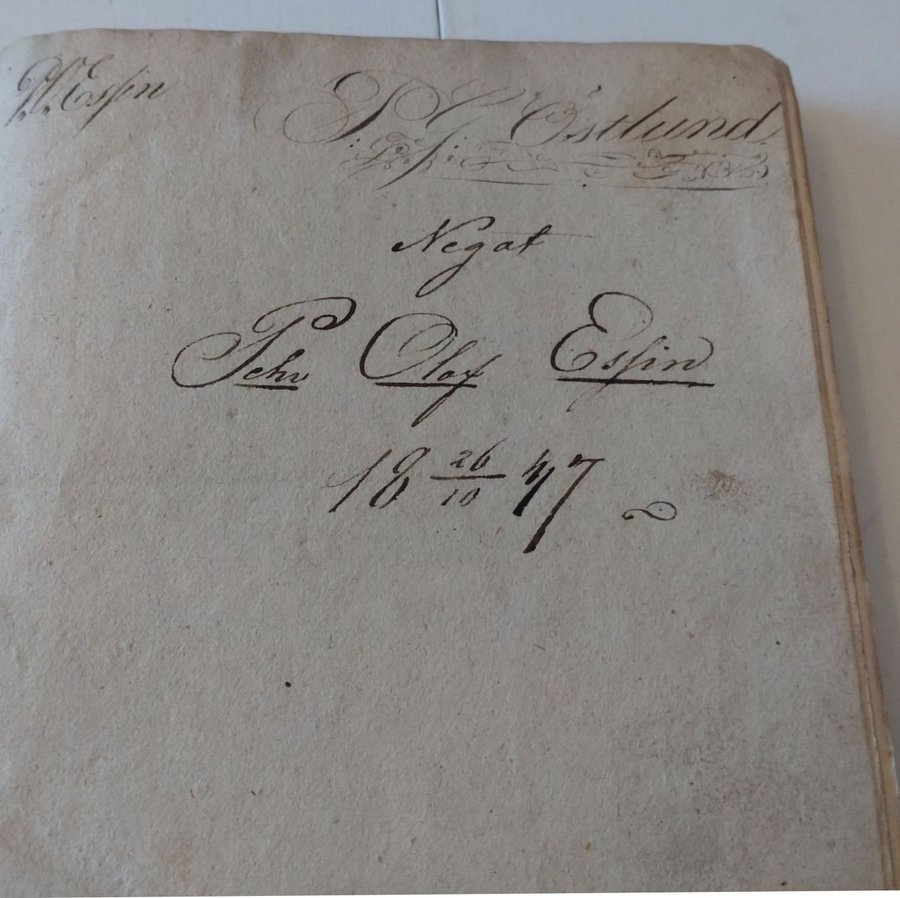 P. O. Essin
P. G. Östlund
Negat
Pehr Olof Essin
18 26/10 47